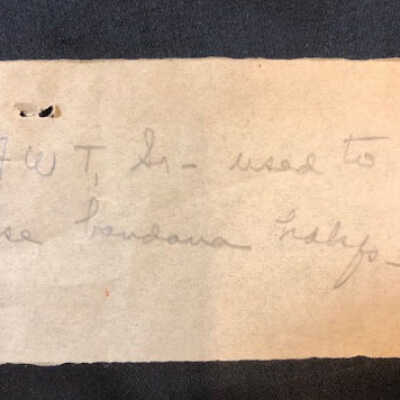 W T, Sr - used to
bandana hdkfs -